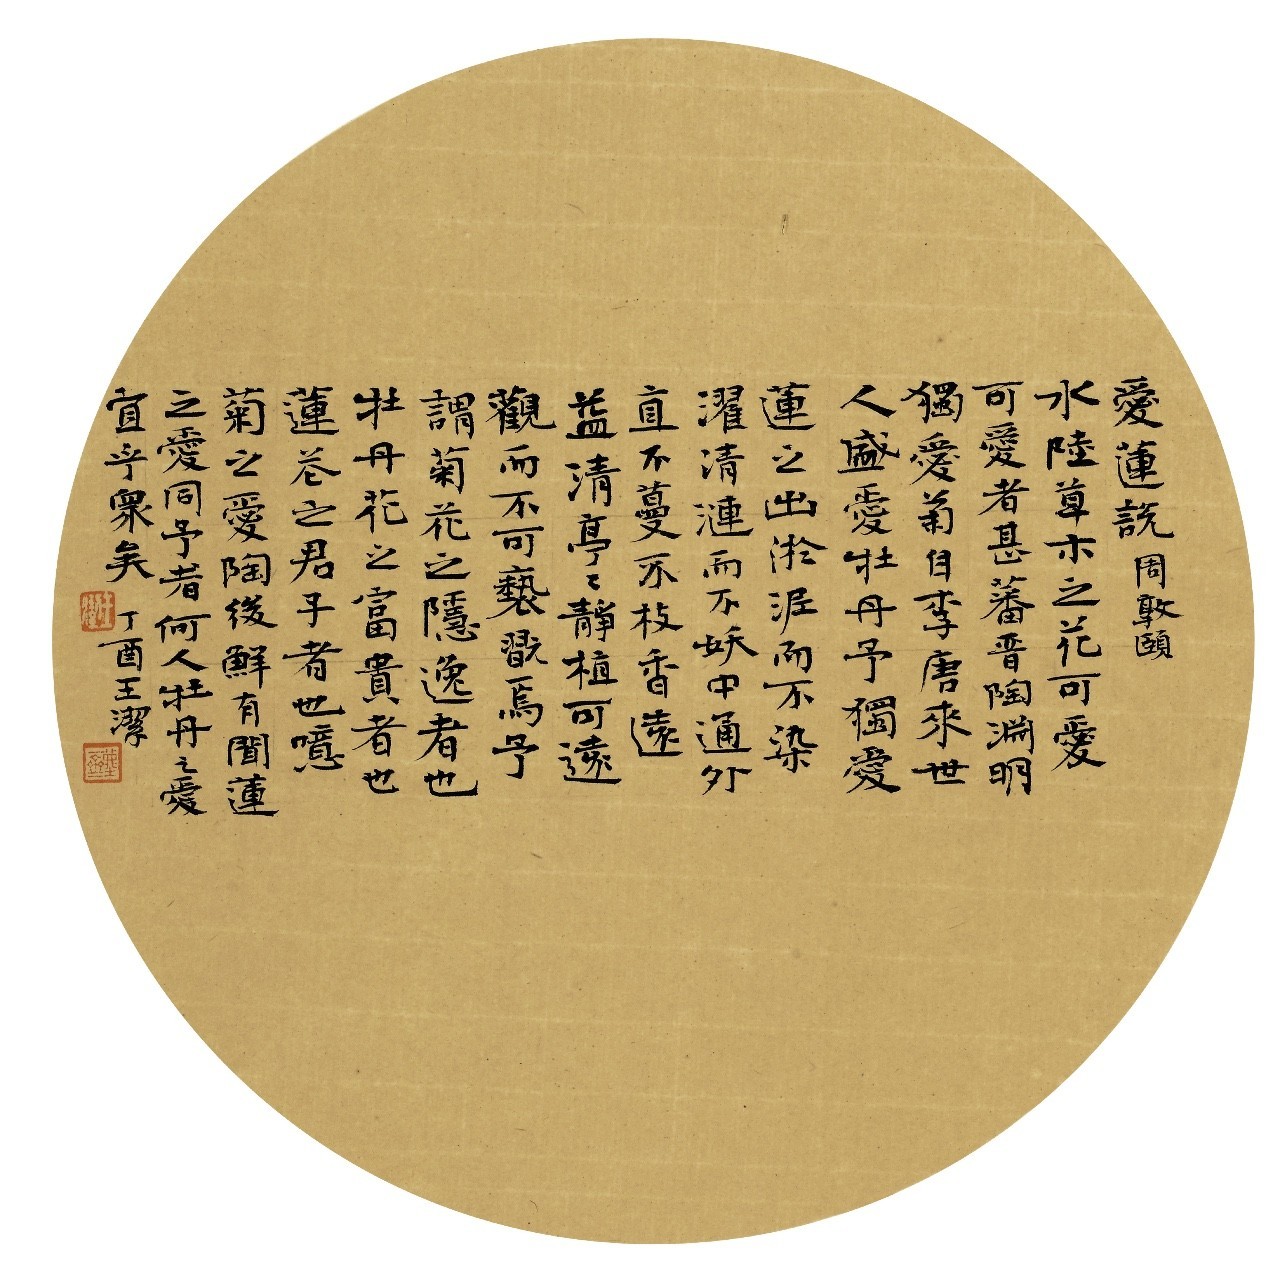 愛蓮說 周敦頤
水陸草木之花可愛
可愛者甚蕃晋陶淵明
獨愛菊自李唐來世
人盛愛牡丹予獨愛
蓮之出淤泥而不染
濯清漣而不妖中通外
直不蔓不枝香遠
益清亭〻靜植可遠
觀而不可褻翫焉予
謂菊花之隱逸者也
牡丹花之富貴者也
蓮花之君子者也噫
菊之愛陶後鮮有聞蓮
之愛同予者何人牡丹之愛
宜乎衆矣
丁酉王潔